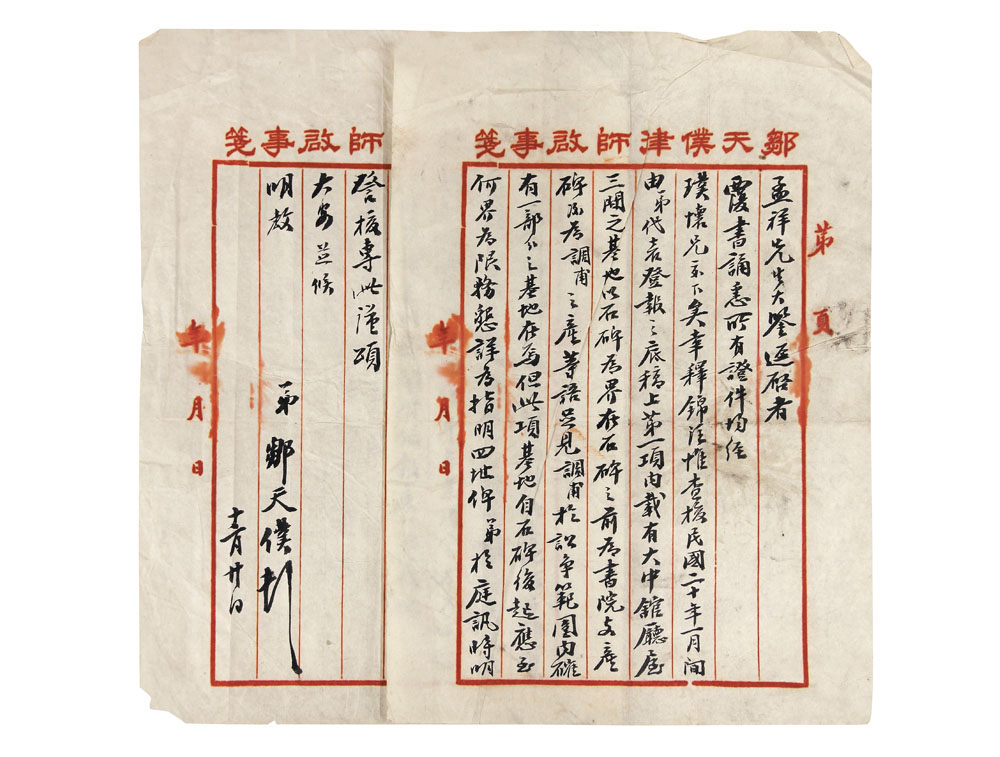 鄒天僕律師啟事箋
第 頁
孟祥先生大鑒逕啓者
覆書誦悉所有證件均經
璞懷兄交下矣幸釋錦注惟查核民國二十年一月間
由弟代表登報之底稿上第一項內載有大中館廳屋
三間之基地以石碑為界在石碑之前為書院文產
碑後為調甫之產等語足見調甫於訟爭範圍內確
有一部分之基地在焉但此項基地自石碑後起應至
何界為限務懇詳為指明四址俾弟於庭訊時明
年 月 日
師啟事箋
詧核專此謹頌
大安並候
明教
弟鄒天僕
十二月廿日
年 月 日